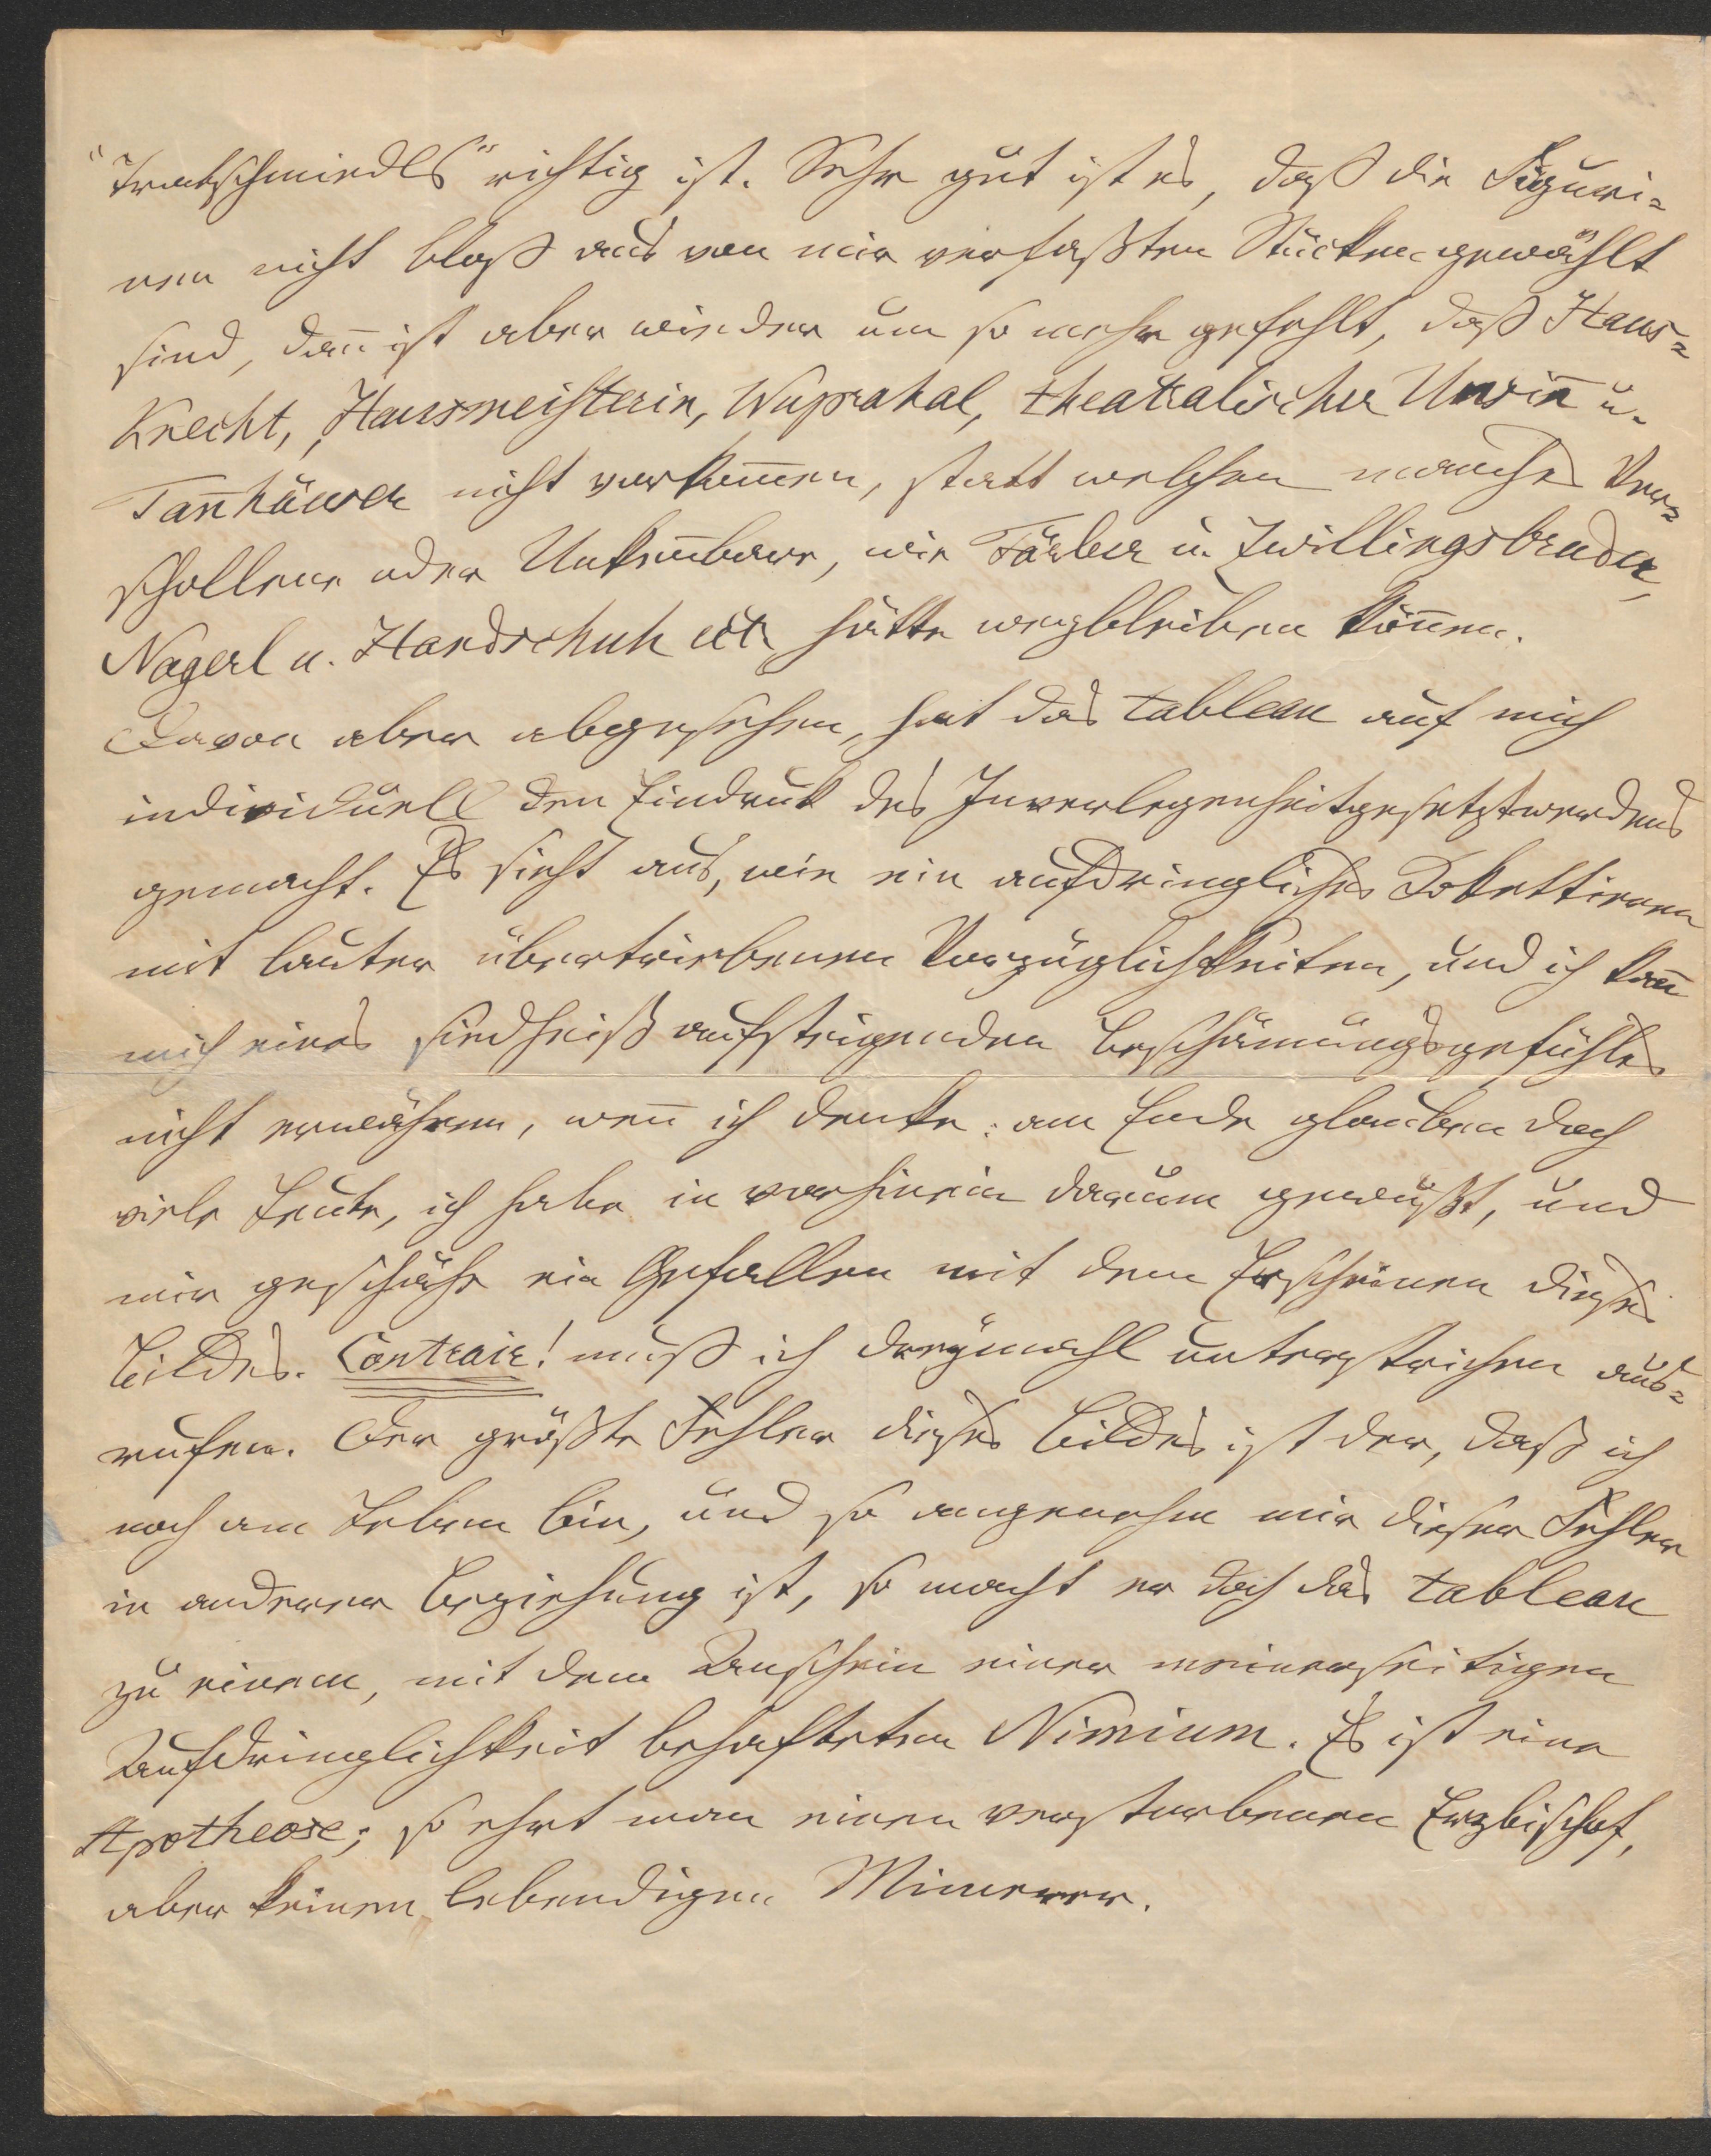 "Tratschmiedls" richtig ist. Sehr gut ist es, daß die Figuri=
nen nicht bloß aus von mir verfaßten Stücken gewählt
sind, dan̄ ist aber wieder um so mehr gefehlt, daß Haus=
knecht, Hausmeisterin, Wuprahal, theatralischer Unsin̄ u.
Tan̄häuser nicht vorkom̄en, statt welchen manches Ver=
schollene oder Unken̄bare, wie Färber u. Zwillingsbruder,
Nagerl u. Handschuh etc hätte wegbleiben kön̄en.
Davon aber abgesehen, hat das tableau auf mich
individuell den Eindruk des Inverlegenheitgesetztwerdens
gemacht. Es sieht aus, wie ein aufdringliches Kokettieren
mit lauter übertriebenen Vorzüglichkeiten, und ich kan̄
mich eines siedheiß aufsteigenden Beschämungsgefühles
nicht erwähren, wen̄ ich denke: am Ende glauben doch
viele Leute, ich habe in vorhinein darum gewußt, und
mir geschähe ein Gefallen mit dem Erscheinen dieses
Bildes. Contrair! muß ich dreymahl unterstrichen aus=
rufen. Der größte Fehler dieses Bildes ist der, daß ich
noch am Leben bin, und so angenehm mir dieser Fehler
in anderer Beziehung ist, so macht er doch das tableau
zu einem, mit dem Anschein einer meinerseitigen
Aufdringlichkeit behafteten Nimium. Es ist eine
Apotheose; so ehrt man einen verstorbenen Erzbischof,
aber keinen lebendigen Mimerer.